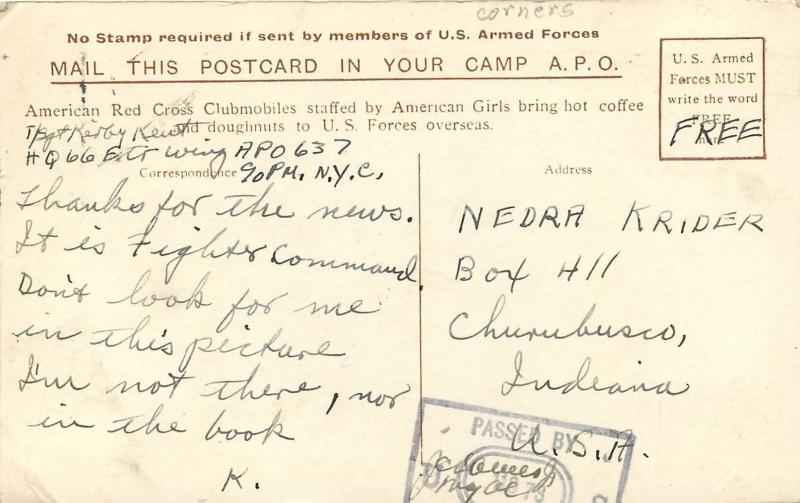 corners
No Stamp required if sent by members of U.S. Armed Forces
MAIL THIS POSTCARD IN YOUR CAMP A.P.O.
U.S. Armed
Forces MUST
write the word
FREE
here
FREE
American Red Cross Clubmobiles staffed by American Girls bring hot coffee
and doughnuts to U.S. Forces overseas.
T/Sgt Kerby Kent
HQ 66 Ftr Wing APO 637
Correspondence
℅ PM, N.Y.C.
Thanks for the news.
It is Fighter Command
Don't look for me
in this picture
I'm not there, nor
in the book
K.
Address
NEDRA KRIDER
Box 411
Churubusco,
Indiana
U.S.A.
PASSED BY